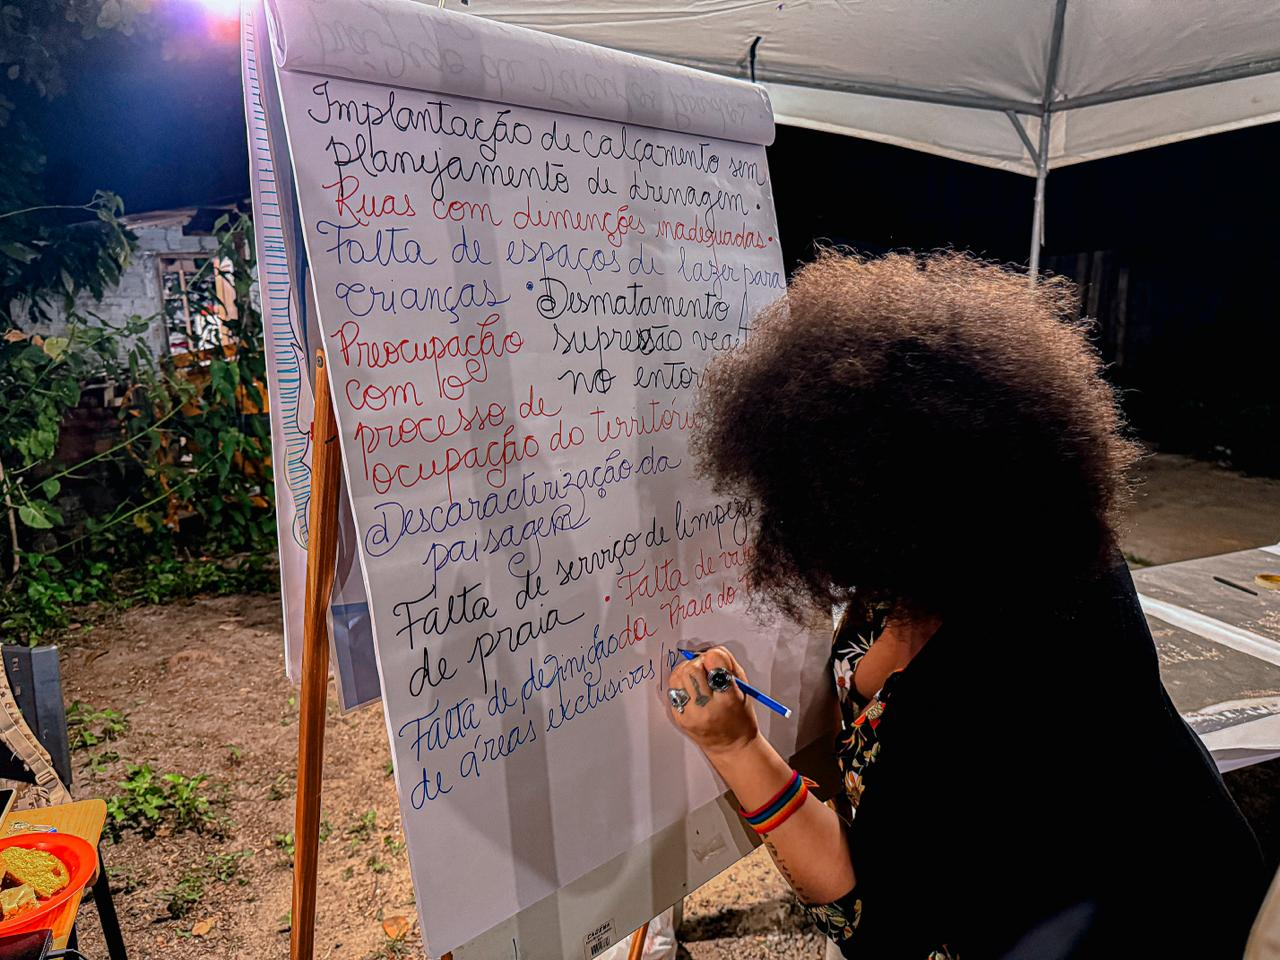 Implantação de calçamento sem
planejamento de drenagem.
Ruas com dimenções inadequadas.
Falta de espaços de lazer para
crianças • Desmatamento
Preocupação supressão
com o no
processo de
ocupação do território
Descaracterização da
paisagem
Falta de serviço de limpeza
de praia • Falta de
da Praia do
Falta de definição
de áreas exclusivas/